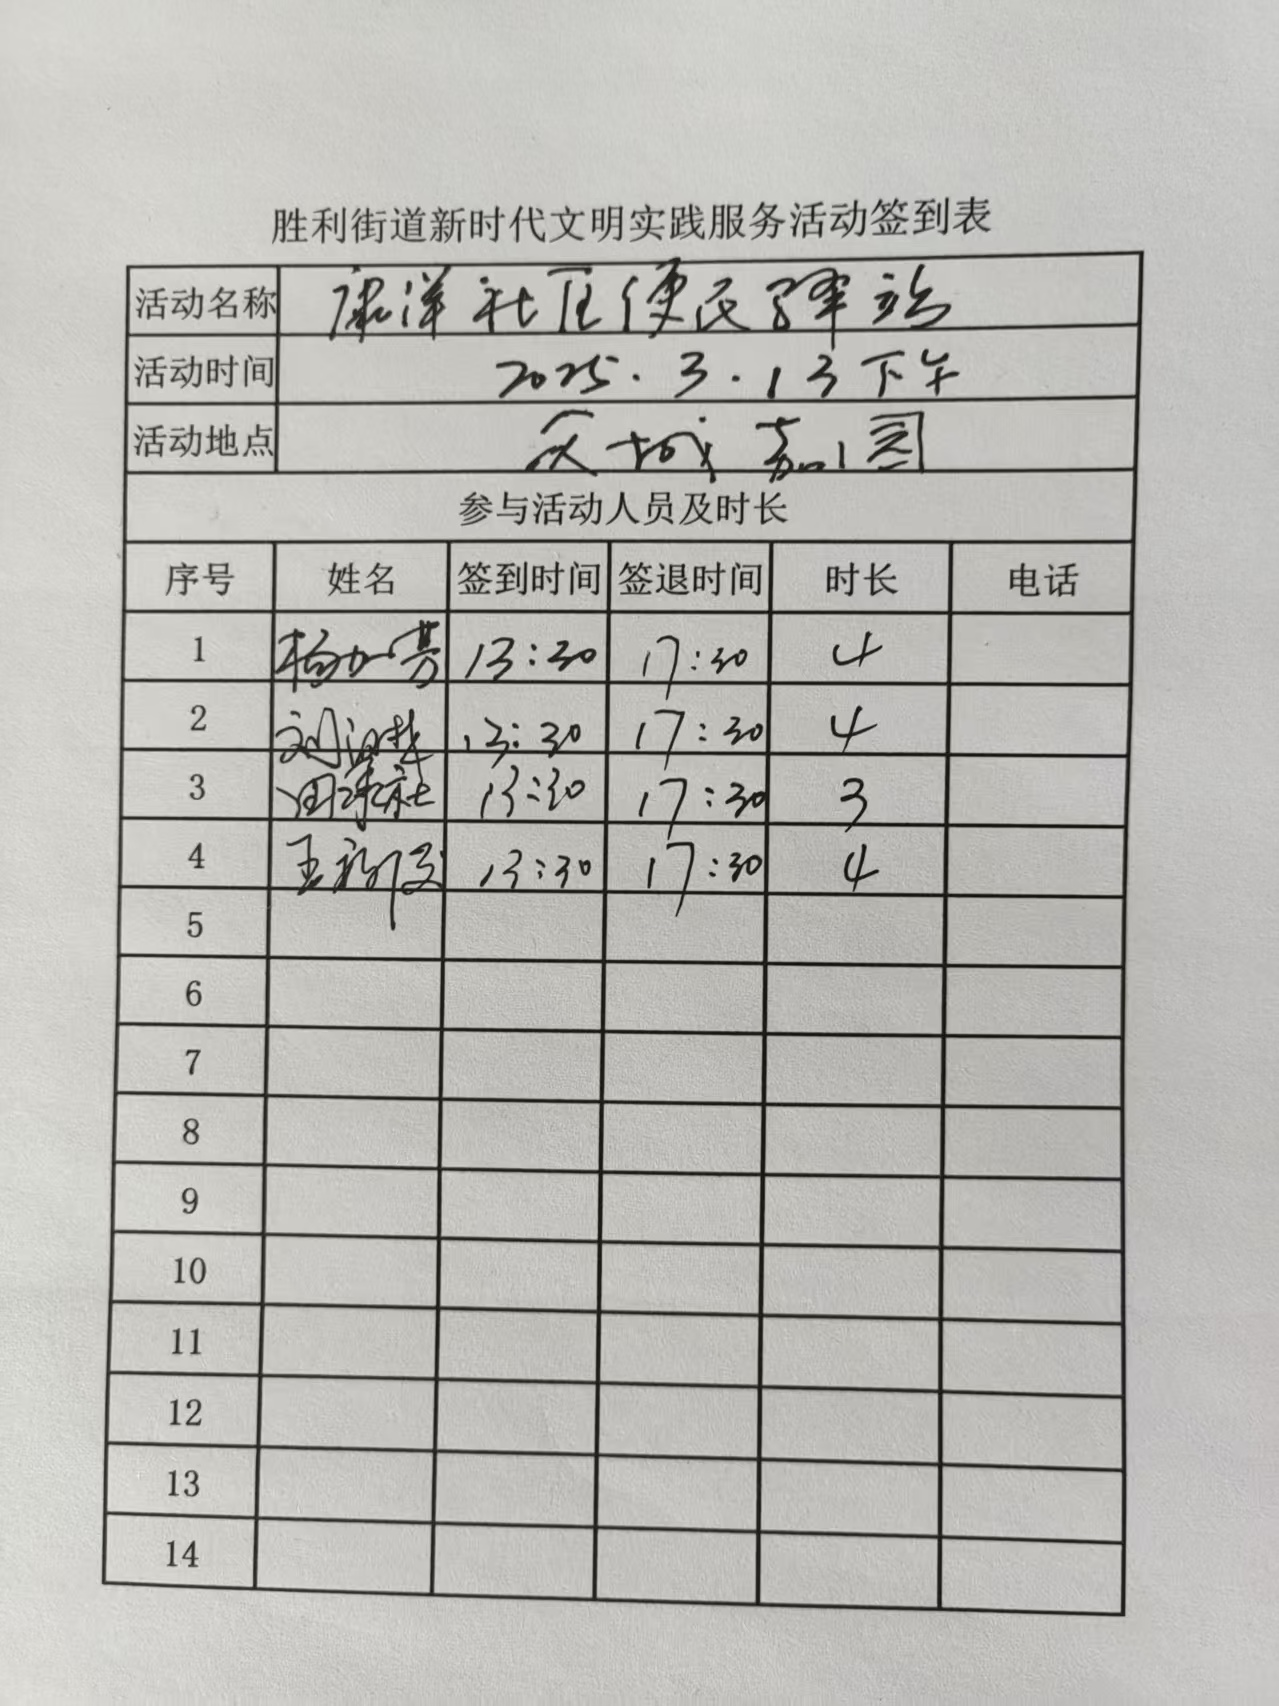 胜利街道新时代文明实践服务活动签到表
活动名称 康洋社区便民驿站
活动时间 2025.3.13下午
活动地点 天城嘉园
参与活动人员及时长
序号 姓名 签到时间 签退时间 时长 电话
1 杨加芳 13:30 17:30 4
2 刘 13:30 17:30 4
3 田 13:30 17:30 3
4 王新 13:30 17:30 4
5
6
7
8
9
10
11
12
13
14